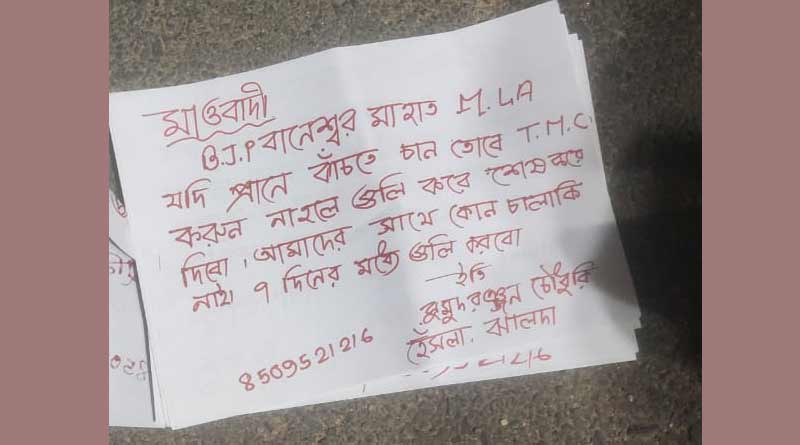 মাওবাদী
B.J.P বানেশ্বর মাহাত M.L.A
যদি প্রানে বাঁচতে চান তোবে T.M.C.
করুন নাহলে গুলি করে শেষ করে
দিবো। আমাদের সাথে কোন চালাকি
নাই। ৭ দিনের মধ্যে গুলি করবো
—ইতি
কুমুদরঞ্জন চৌধুরি
হেঁসলা. ঝালদা
8509521216